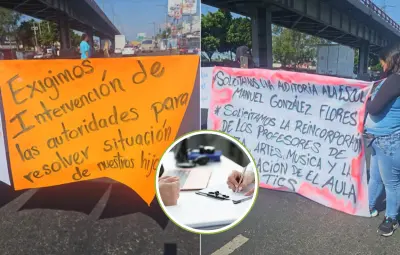 Exigimos
Intervención de
las autoridades para
resolver situación
de nuestros hijos
SOLICITAMOS UNA AUDITORÍA A LA ESCUELA
MANUEL GONZÁLEZ FLORES
*SOLICITAMOS LA REINCORPORACIÓN
DE LOS PROFESORES DE
ARTES, MUSICA Y LA
ACIÓN DE EL AULA
TICS